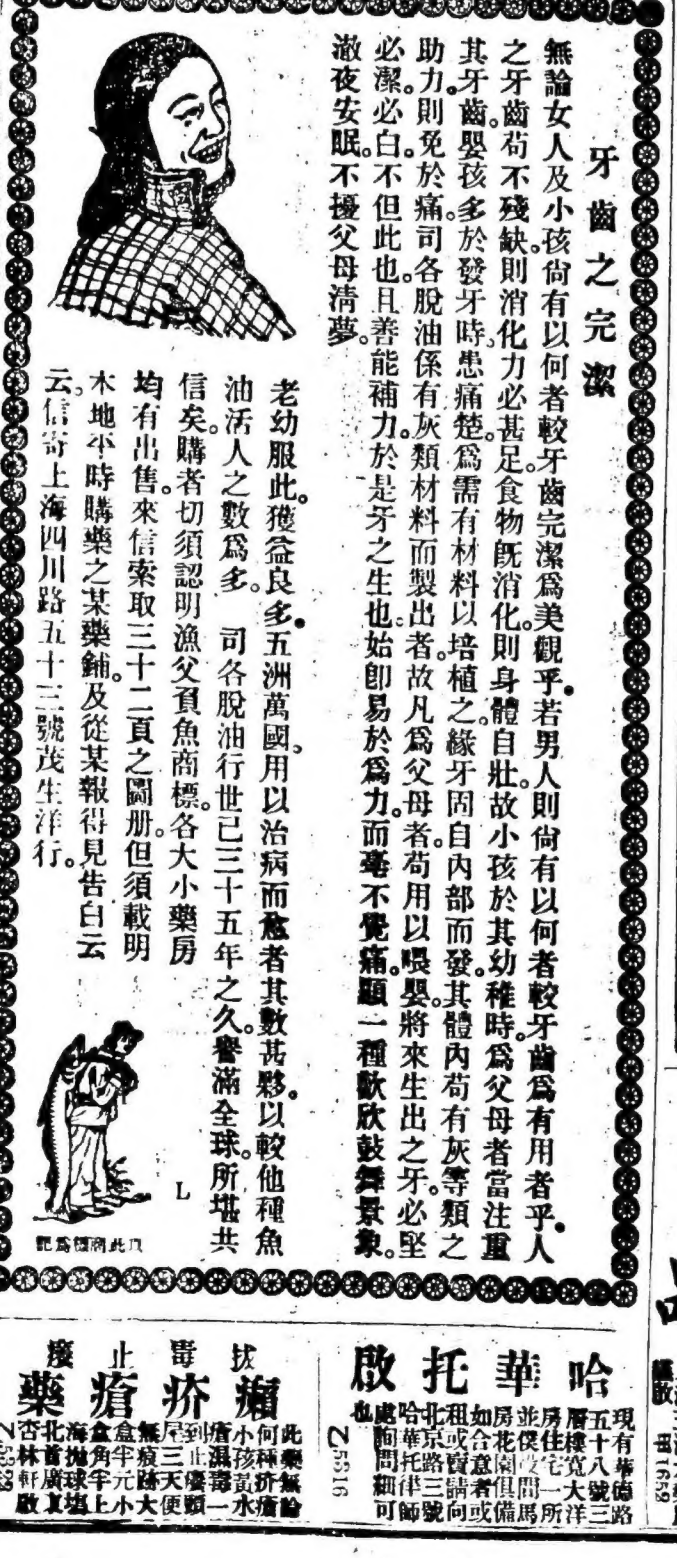 牙齒之完潔
無論女人及小孩尙有以何者較牙齒完潔爲美觀乎。若男人則尙有以何者較牙齒爲有用者乎。人
之牙齒苟不殘缺。則消化力必甚足。食物旣消化。則身體自壯。故小孩於其幼稚時。爲父母者當注重
其牙齒。嬰孩多於發牙時。患痛楚。爲需有材料以培植之。緣牙固自內部而發。其體內苟有灰等類之
助力。則免於痛。司各脫油係有灰類材料而製出者。故凡爲父母者。苟用以喂嬰。將來生出之牙。必堅
必潔。必白。不但此也。且善能補力。於是牙之生也。始卽易於爲力。而毫不覺痛。顯一種歡欣鼓舞景象。
澈夜安眠。不擾父母淸夢。
老幼服此。獲益良多。五洲萬國。用以治病而愈者其數甚夥。以較他種魚
油活人之數爲多。司各脫油行世已三十五年之久。譽滿全球。所堪共
信矣。購者切須認明漁父負魚商標。各大小藥房
均有出售。來信索取三十二頁之圖册。但須載明
本地平時購藥之某藥鋪。及從某報得見告白云
云。信寄上海四川路五十三號茂生洋行。
L
哈華托啟
現有華德路
五十八號三
層樓寬大洋
房住宅一所
並僕役間馬
房花園俱備
如合意者或
租或賣請向
北京路三號
哈華托律師
處詢問細可
也
Z5816
拔毒止癢
癩疥瘡藥
此藥無論
何種疥瘡
小孩黃水
瘡濕毒一
到止癢顯
三天便
無疤跡大
盒半元小
盒角半上
海拋球塲
北首廣
杏林軒啟